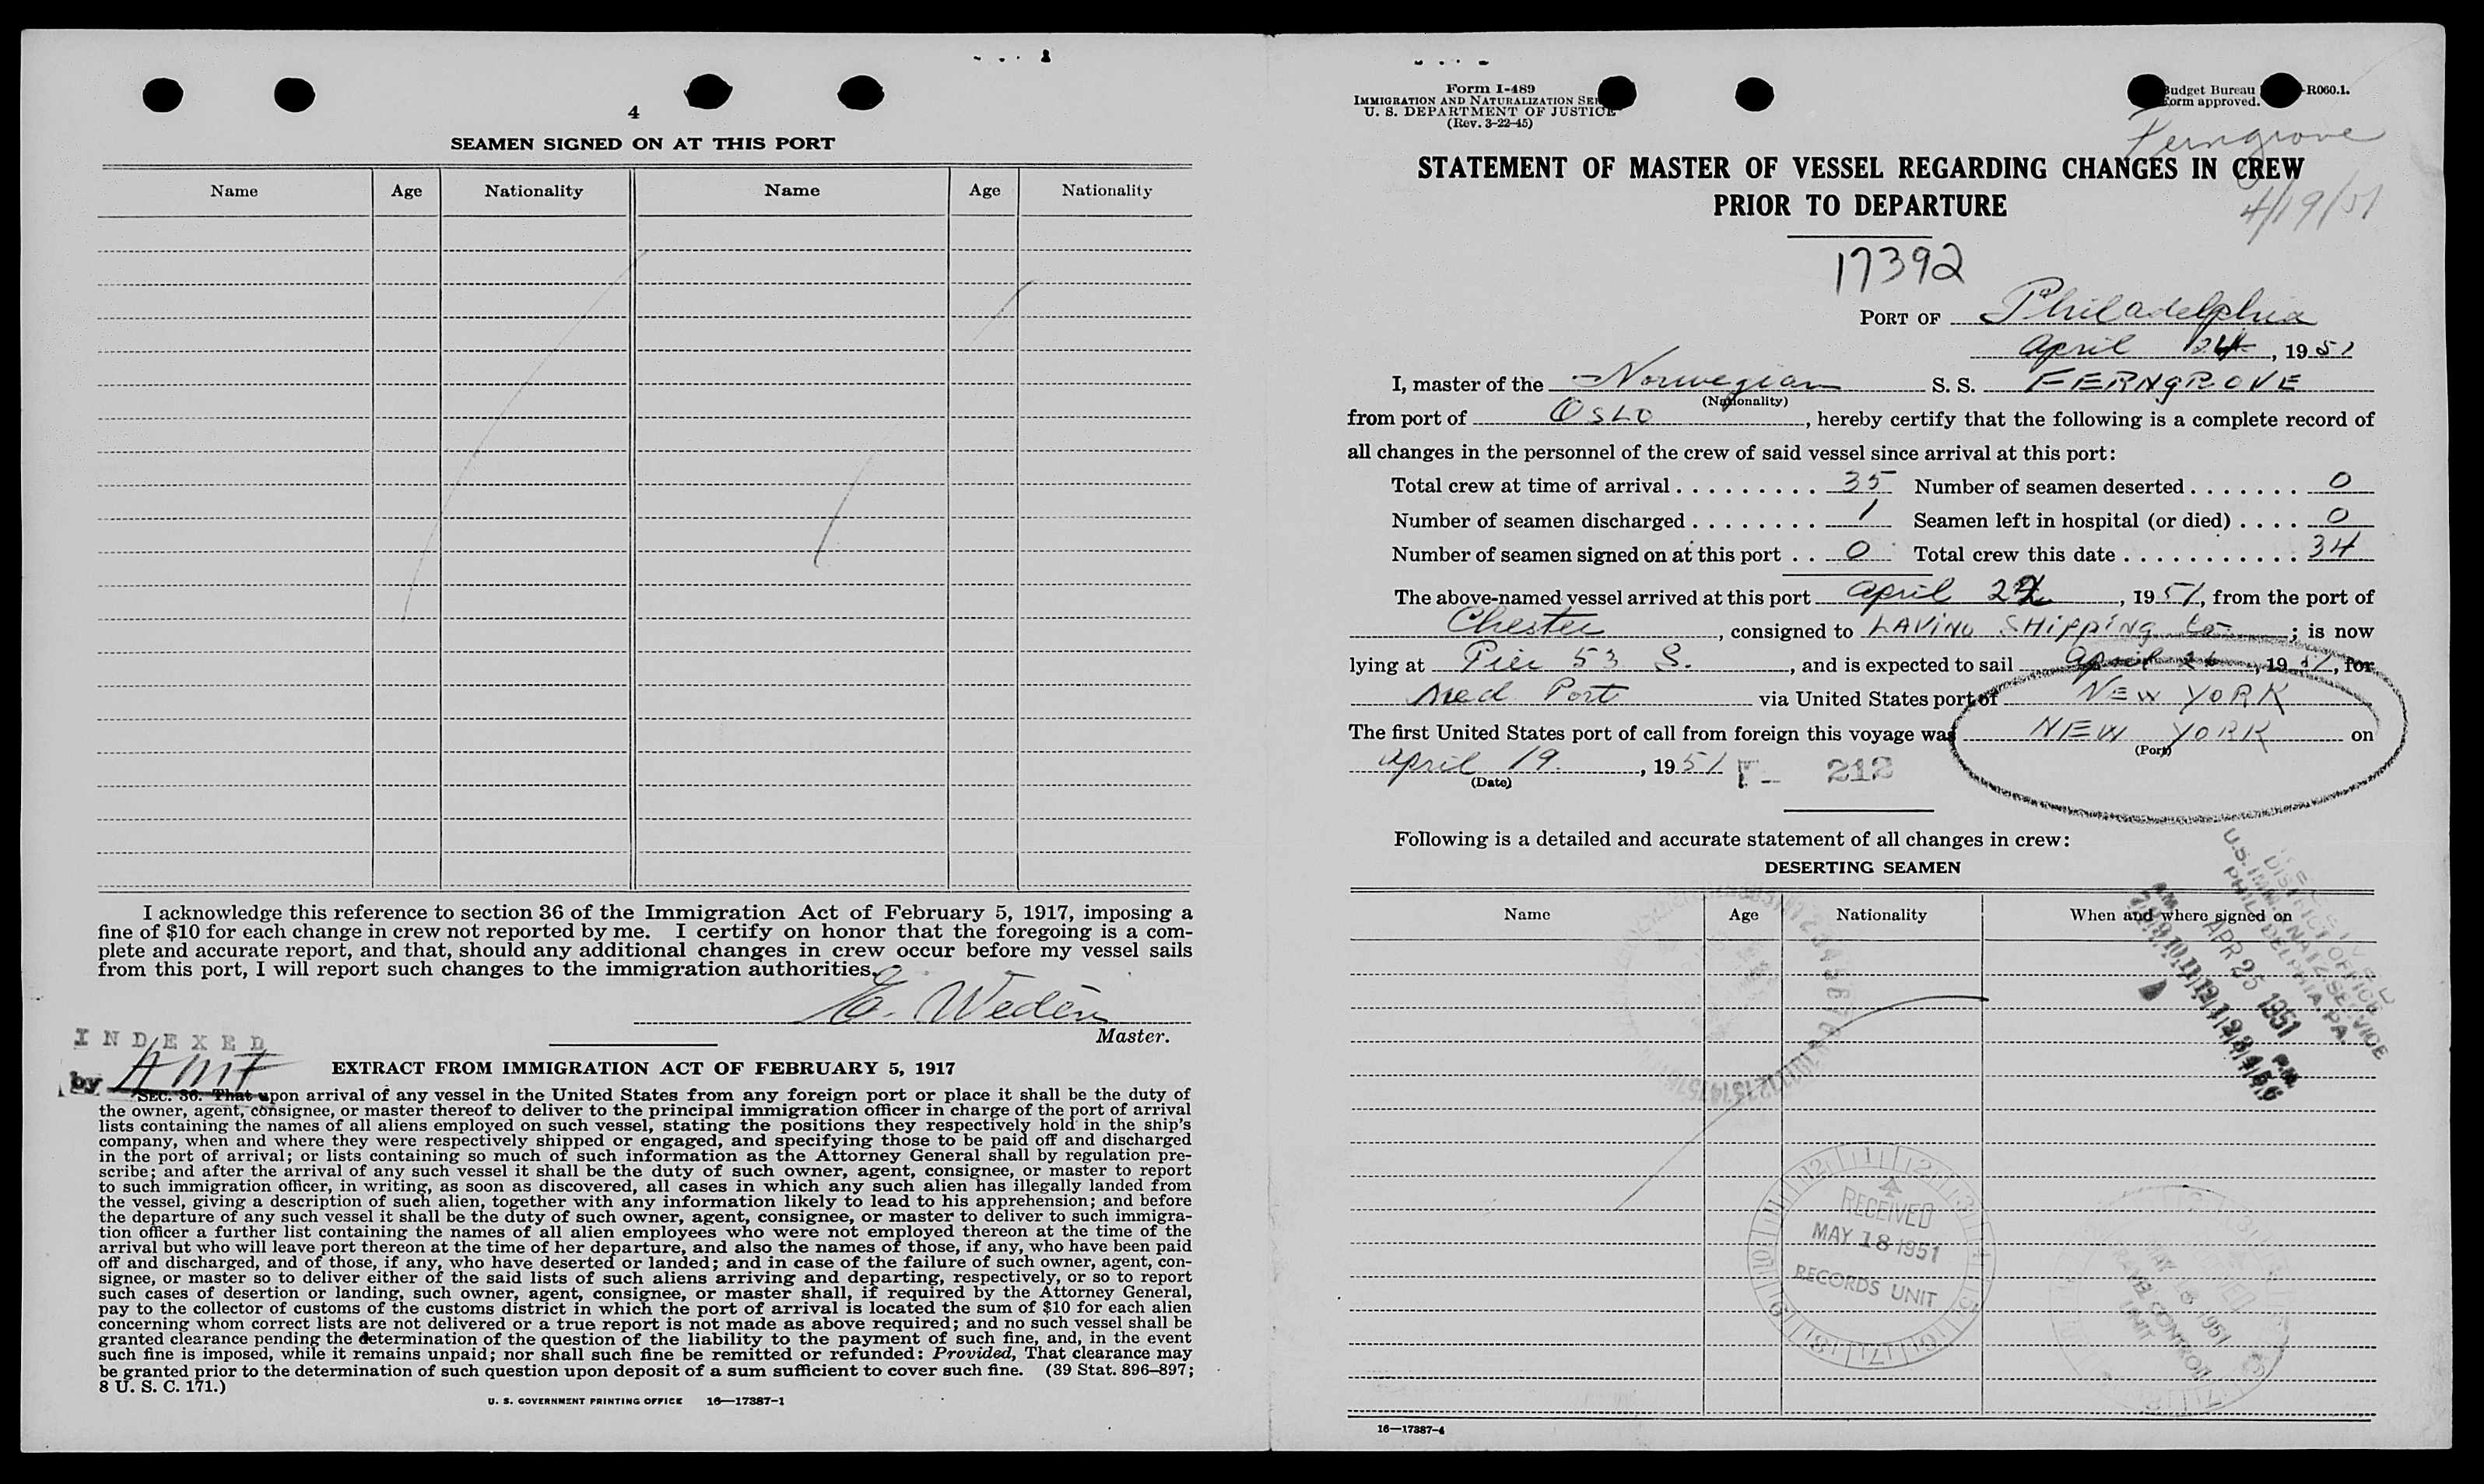 4
SEAMEN SIGNED ON AT THIS PORT
Name Age Nationality Name Age Nationality
I acknowledge this reference to section 36 of the Immigration Act of February 5, 1917, imposing a
fine of $10 for each change in crew not reported by me. I certify on honor that the foregoing is a com-
plete and accurate report, and that, should any additional changes in crew occur before my vessel sails
from this port, I will report such changes to the immigration authorities.
E. Wedén
Master.
INDEXED
by AMF
EXTRACT FROM IMMIGRATION ACT OF FEBRUARY 5, 1917
SEC. 36. That upon arrival of any vessel in the United States from any foreign port or place it shall be the duty of
the owner, agent, consignee, or master thereof to deliver to the principal immigration officer in charge of the port of arrival
lists containing the names of all aliens employed on such vessel, stating the positions they respectively hold in the ship's
company, when and where they were respectively shipped or engaged, and specifying those to be paid off and discharged
in the port of arrival; or lists containing so much of such information as the Attorney General shall by regulation pre-
scribe; and after the arrival of any such vessel it shall be the duty of such owner, agent, consignee, or master to report
to such immigration officer, in writing, as soon as discovered, all cases in which any such alien has illegally landed from
the vessel, giving a description of such alien, together with any information likely to lead to his apprehension; and before
the departure of any such vessel it shall be the duty of such owner, agent, consignee, or master to deliver to such immigra-
tion officer a further list containing the names of all alien employees who were not employed thereon at the time of the
arrival but who will leave port thereon at the time of her departure, and also the names of those, if any, who have been paid
off and discharged, and of those, if any, who have deserted or landed; and in case of the failure of such owner, agent, con-
signee, or master so to deliver either of the said lists of such aliens arriving and departing, respectively, or so to report
such cases of desertion or landing, such owner, agent, consignee, or master shall, if required by the Attorney General,
pay to the collector of customs of the customs district in which the port of arrival is located the sum of $10 for each alien
concerning whom correct lists are not delivered or a true report is not made as above required; and no such vessel shall be
granted clearance pending the determination of the question of the liability to the payment of such fine, and, in the event
such fine is imposed, while it remains unpaid; nor shall such fine be remitted or refunded: Provided, That clearance may
be granted prior to the determination of such question upon deposit of a sum sufficient to cover such fine. (39 Stat. 896–897;
8 U. S. C. 171.)
U. S. GOVERNMENT PRINTING OFFICE 16—17387-1
Form I-489
IMMIGRATION AND NATURALIZATION
U. S. DEPARTMENT OF JUSTICE
(Rev. 3-22-45)
Budget Bureau R060.1.
Form approved.
Ferngrove
4/19/51
STATEMENT OF MASTER OF VESSEL REGARDING CHANGES IN CREW
PRIOR TO DEPARTURE
17392
PORT OF Philadelphia
April 24, 1951
I, master of the Norwegian S. S. FERNGROVE
(Nationality)
from port of OSLO, hereby certify that the following is a complete record of
all changes in the personnel of the crew of said vessel since arrival at this port:
Total crew at time of arrival 35 Number of seamen deserted 0
Number of seamen discharged 1 Seamen left in hospital (or died) 0
Number of seamen signed on at this port 0 Total crew this date 34
The above-named vessel arrived at this port April 22, 1951, from the port of
Chester, consigned to LAVINO SHIPPING Co; is now
lying at Pier 53 S., and is expected to sail April 26, 1951, for
Med Port via United States port of NEW YORK
The first United States port of call from foreign this voyage was NEW YORK on
(Port)
April 19., 1951 F- 212
(Date)
Following is a detailed and accurate statement of all changes in crew:
DESERTING SEAMEN
Name Age Nationality When and where signed on
RECEIVED
DISTRICT OFFICE
U.S. IMM. NATZ. SERVICE
PHILADELPHIA, PA.
APR 25 1951
A.M. P.M.
7 8 9 10 11 12 1 2 3 4 5 6
RECEIVED
MAY 18 1951
RECORDS UNIT
MAY 18 1951
TRAVEL CONTROL
UNIT
16—17387-4